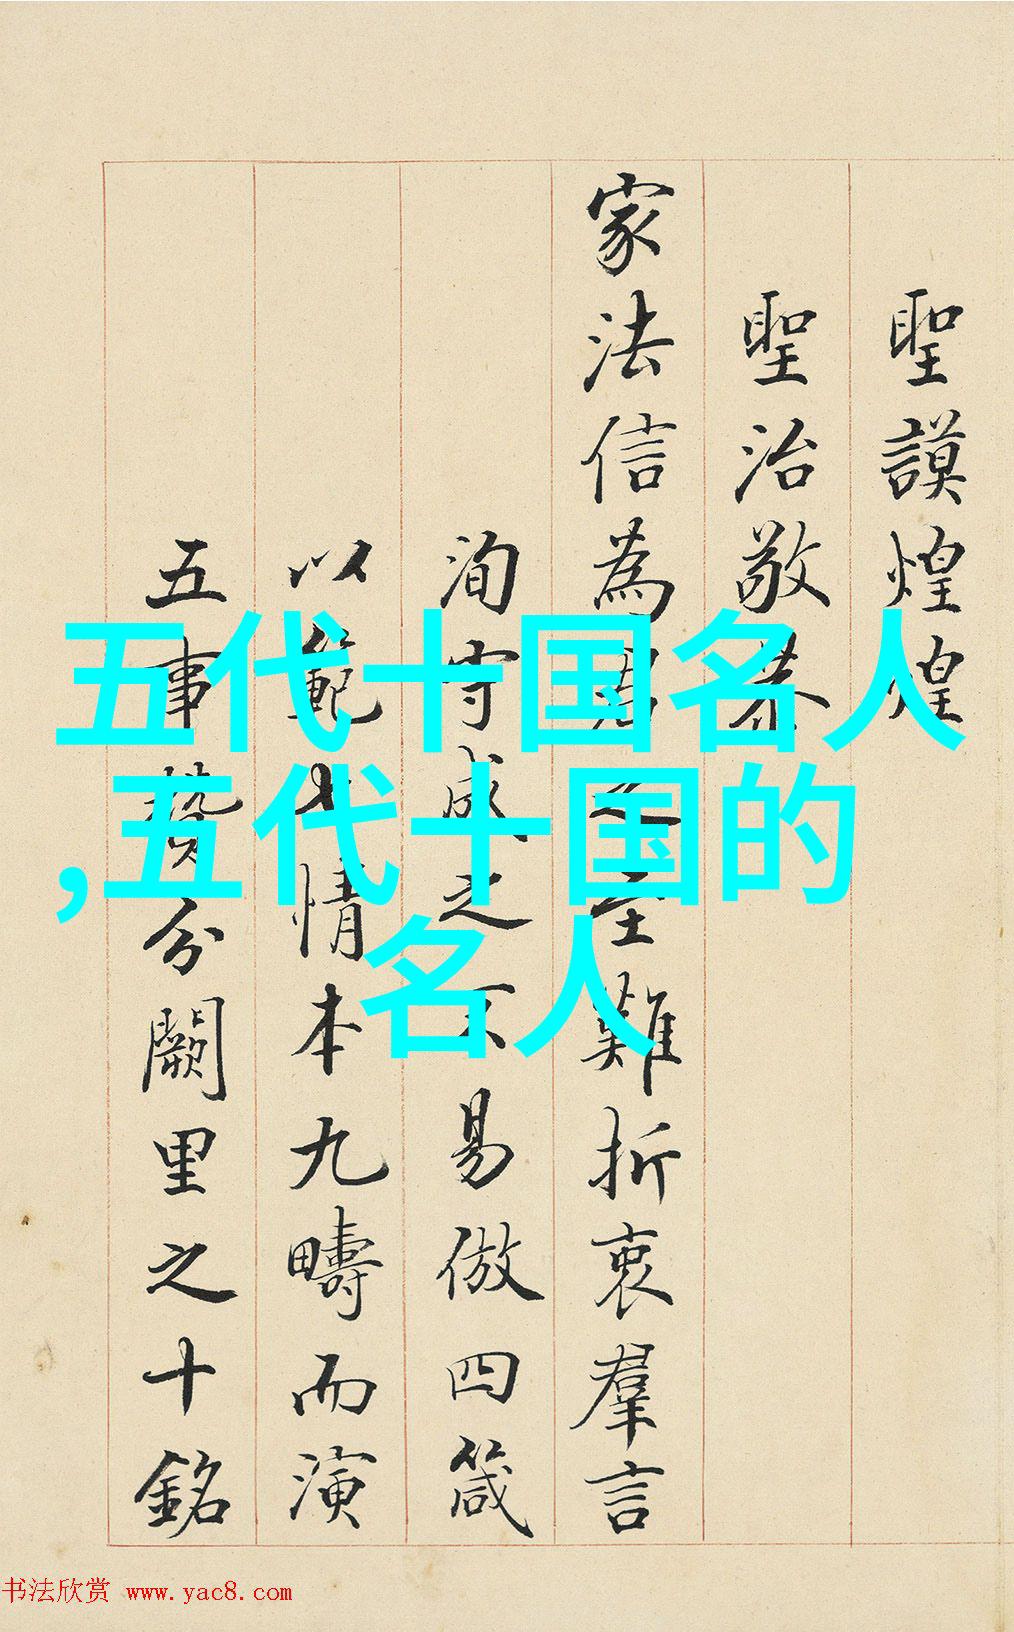 聖謨煌煌
聖治敬恭
家法信為君之至難折衷羣言
洵守成之不易倣四箴
以範七情本九疇而演
五事贊分闕里之十銘
五代十国名人
,五代十国的
名人
书法欣赏 www.yac8.com